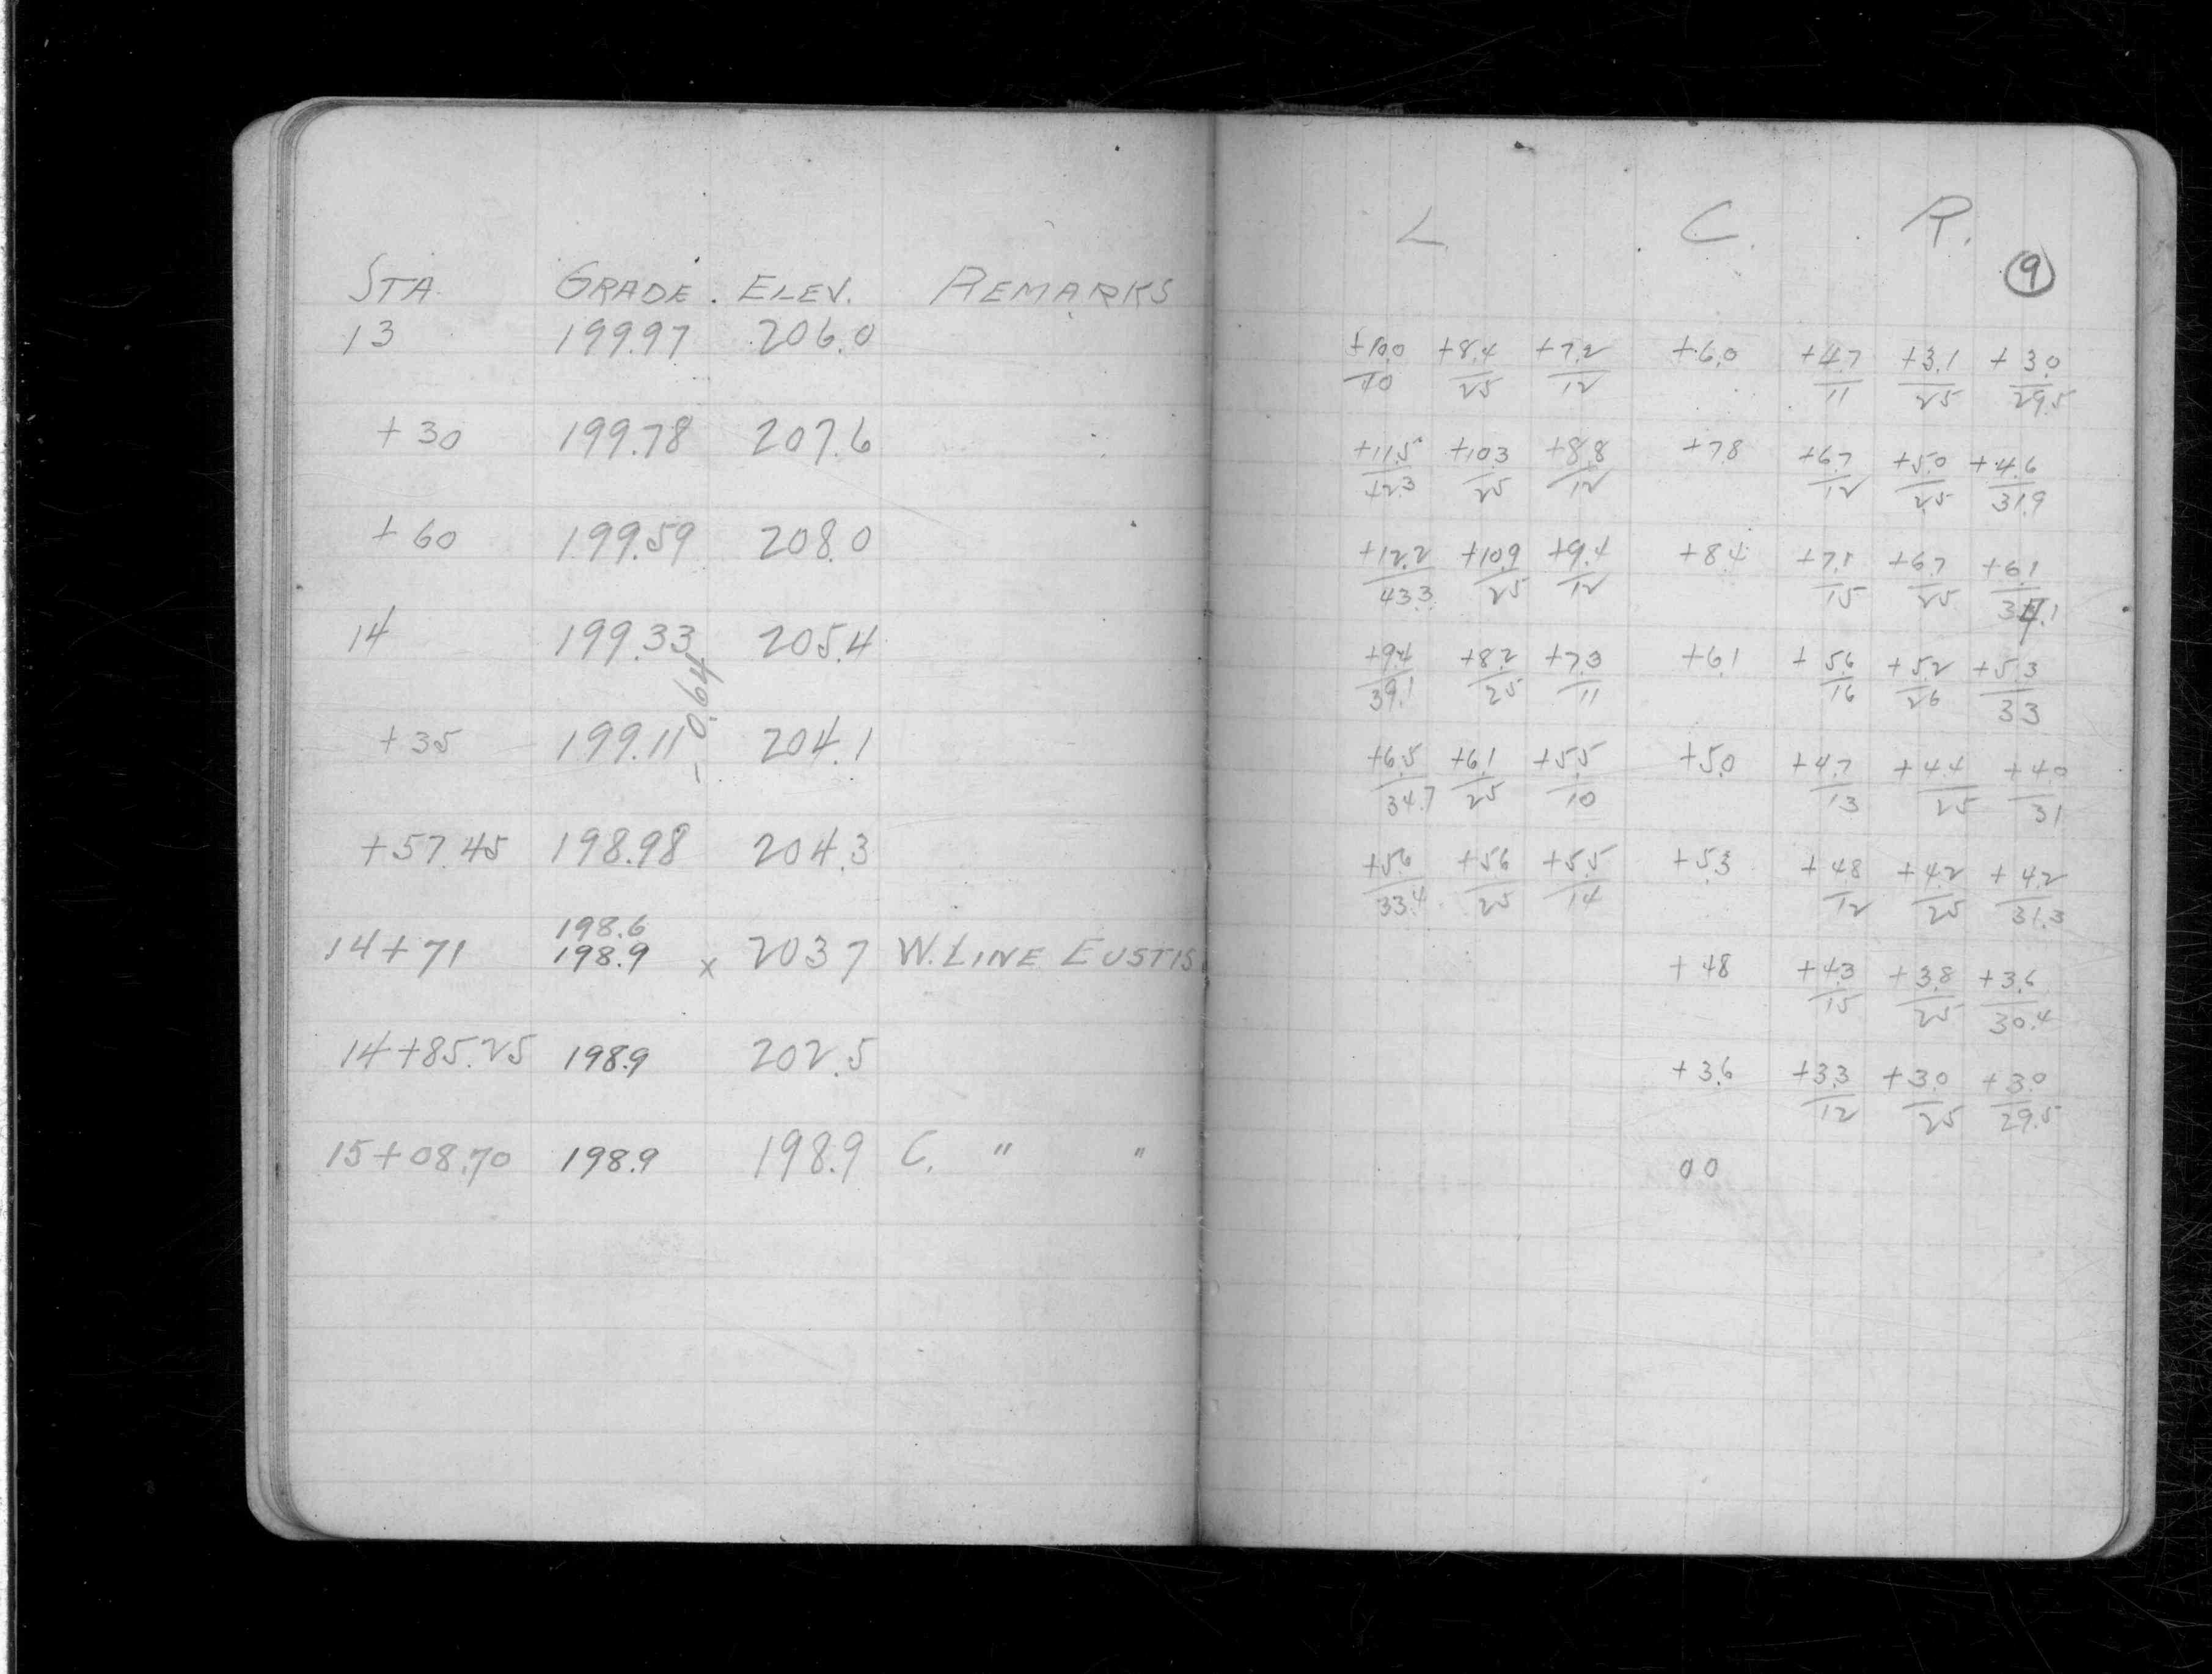 STA. GRADE. ELEV. REMARKS
13 199.97 206.0
+30 199.78 207.6
+60 199.59 208.0
14 199.33 205.4
-0.64
+35 199.11 204.1
+57.45 198.98 204.3
198.6
14+71 198.9 x 203.7 W. LINE EUSTIS
14+85.25 198.9 202.5
15+08.70 198.9 198.9 C. " "
L C. R.
9
+10.0 +8.4 +7.2 +6.0 +4.7 +3.1 +3.0
40 25 12 11 25 29.5
+11.5 +10.3 +8.8 +7.8 +6.7 +5.0 +4.6
42.3 25 12 12 25 31.9
+12.2 +10.9 +9.4 +8.4 +7.1 +6.7 +6.1
43.3 25 12 15 25 34.1
+9.4 +8.2 +7.3 +6.1 +5.6 +5.2 +5.3
39.1 25 11 16 26 33
+6.5 +6.1 +5.5 +5.0 +4.7 +4.4 +4.0
34.7 25 10 13 25 31
+5.6 +5.6 +5.5 +5.3 +4.8 +4.2 +4.2
33.4 25 14 12 25 31.3
+4.8 +4.3 +3.8 +3.6
15 25 30.4
+3.6 +3.3 +3.0 +3.0
12 25 29.5
0.0